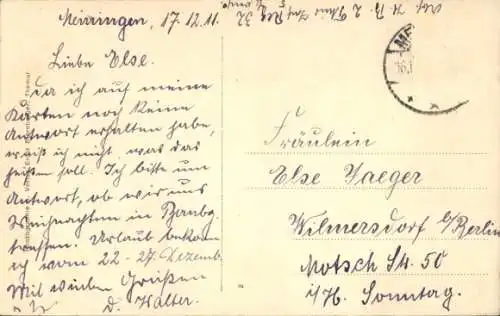 Meiningen, 17.12.11.
Liebe Else.
Da ich auf meine
Karten noch keine
Antwort erhalten habe,
weiß ich nicht, was das
heißen soll. Ich bitte um
Antwort, ob wir uns
Weihnachten in Bambg.
treffen. Urlaub bekom
ich vom 22 - 27. Dezemb.
Mit vielen Grüßen
D. Walter.
2 Thür Inf Reg 32
Fräulein
Else Jaeger
Wilmersdorf b/Berlin
Motsch Str. 50
i/H. Sonntag.